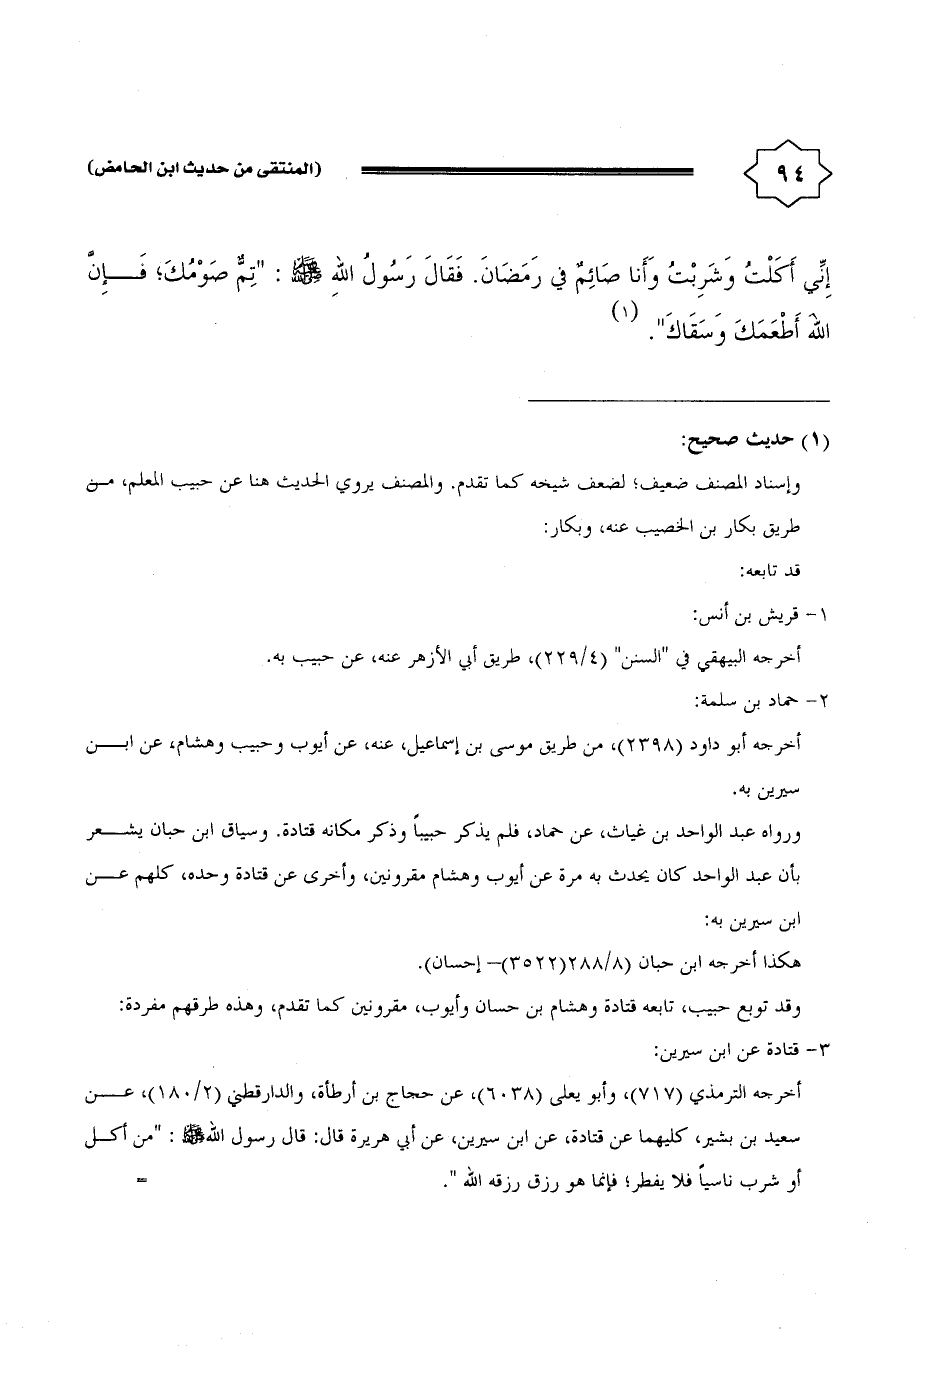 ٩٤ (المنتقى من حديث ابن الحامض)
إِنِّي أَكَلْتُ وَشَرِبْتُ وَأَنا صَائِمٌ في رَمَضَانَ. فَقَالَ رَسُولُ اللهِ ﷺ : "تِمَّ صَوْمُكَ؛ فَـــإِنَّ
اللهَ أَطْعَمَكَ وَسَقَاكَ". (١)
(١) حديث صحيح:
وإسناد المصنف ضعيف؛ لضعف شيخه كما تقدم. والمصنف يروي الحديث هنا عن حبيب المعلم، مـن
طريق بكار بن الخصيب عنه، وبكار:
قد تابعه:
١- قريش بن أنس:
أخرجه البيهقي في "السنن" (٢٢٩/٤)، طريق أبي الأزهر عنه، عن حبيب به.
٢- حماد بن سلمة:
أخرجه أبو داود (٢٣٩٨)، من طريق موسى بن إسماعيل، عنه، عن أيوب وحبيب وهشام، عن ابـــن
سيرين به.
ورواه عبد الواحد بن غياث، عن حماد، فلم يذكر حبيباً وذكر مكانه قتادة. وسياق ابن حبان يشـــعر
بأن عبد الواحد كان يحدث به مرة عن أيوب وهشام مقرونين، وأخرى عن قتادة وحده، كلهم عـــن
ابن سيرين به:
هكذا أخرجه ابن حبان (٢٨٨/٨(٣٥٢٢)– إحسان).
وقد توبع حبيب، تابعه قتادة وهشام بن حسان وأيوب، مقرونين كما تقدم، وهذه طرقهم مفردة:
٣- قتادة عن ابن سيرين:
أخرجه الترمذي (٧١٧)، وأبو يعلى (٦٠٣٨)، عن حجاج بن أرطأة، والدارقطني (١٨٠/٢)، عـــن
سعيد بن بشير، كليهما عن قتادة، عن ابن سيرين، عن أبي هريرة قال: قال رسول الله ﷺ : "من أكـــل
أو شرب ناسياً فلا يفطر؛ فإنما هو رزق رزقه الله ". =